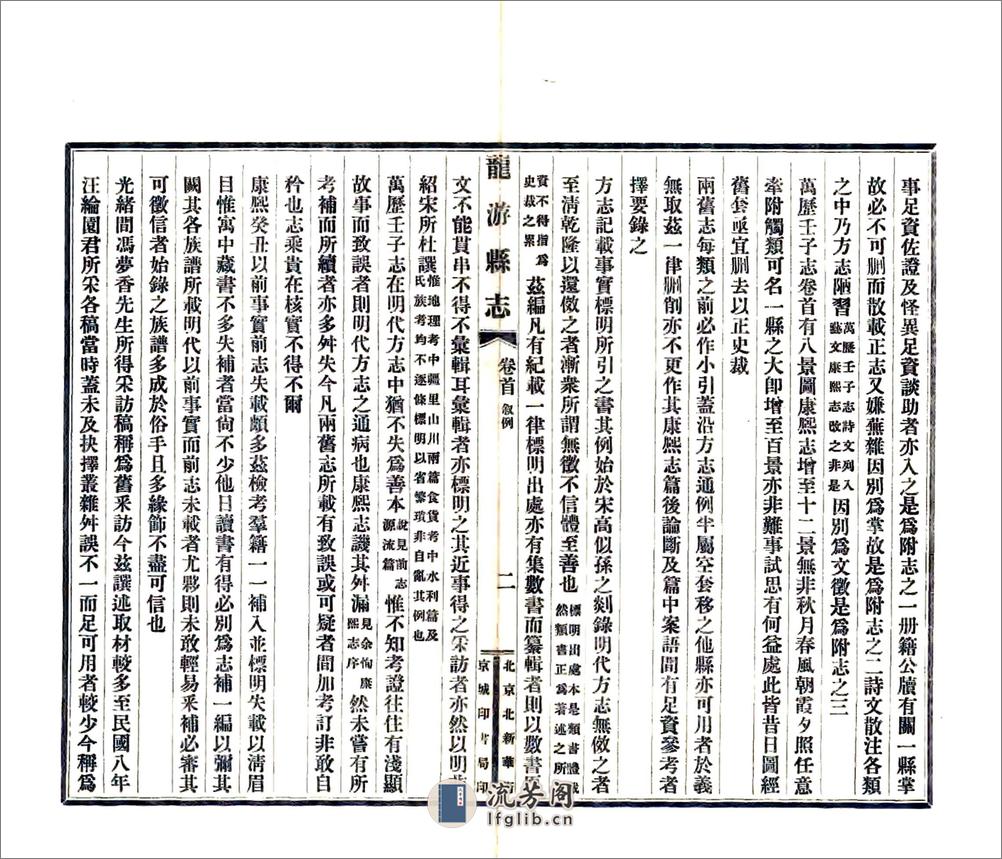 事足資佐證及怪異足資談助者亦入之是爲附志之一册籍公牘有關一縣掌
故必不可刪而散載正志又嫌蕪雜因別爲掌故是爲附志之二詩文散注各類
之中乃方志陋習萬歷壬子志詩文列入藝文康熙志改之非是因別爲文徵是爲附志之三
萬歷壬子志卷首有八景圖康熙志增至十二景無非秋月春風朝霞夕照任意
牽附觸類可名一縣之大卽增至百景亦非難事試思有何益處此皆昔日圖經
舊套亟宜刪去以正史裁
兩舊志每類之前必作小引蓋沿方志通例半屬空套移之他縣亦可用者於義
無取茲一律刪削亦不更作其康熙志篇後論斷及篇中案語間有足資參考者
擇要錄之
方志記載事實標明所引之書其例始於宋高似孫之剡錄明代方志無倣之者
至清乾隆以還倣之者漸衆所謂無徵不信體至善也標明出處本是類書體裁然類書正爲著述之所
資不得指爲史裁之累茲編凡有紀載一律標明出處亦有集數書而纂輯者則以數書
龍游縣志
卷首
敘例
二
北京北新華街
京城印書局印
文不能貫串不得不彙輯耳彙輯者亦標明之其近事得之采訪者亦然以明
紹宋所杜譔惟地理考中疆里山川兩篇食貨考中水利篇及氏族考均不逐條標明以省繁瑣非自亂其例也
萬歷壬子志在明代方志中猶不失爲善本說見前志源流篇惟不知考證往往有淺顯
故事而致誤者則明代方志之通病也康熙志譏其舛漏見余恂康熙志序然未嘗有所
考補而所續者亦多舛失今凡兩舊志所載有致誤或可疑者間加考訂非敢自
矜也志乘貴在核實不得不爾
康熙癸丑以前事實前志失載頗多茲檢考羣籍一一補入並標明失載以清眉
目惟寓中藏書不多失補者當尙不少他日讀書有得必別爲志補一編以彌其
闕其各族譜所載明代以前事實而前志未載者尤夥則未敢輕易釆補必審其
可徵信者始錄之族譜多成於俗手且多緣飾不盡可信也
光緒間馮夢香先生所得采訪稿稱爲舊釆訪今茲譔述取材較多至民國八年
汪綸閣君所采各稿當時蓋未及抉擇叢雜舛誤不一而足可用者較少今稱爲
流芳阁
lfglib.cn